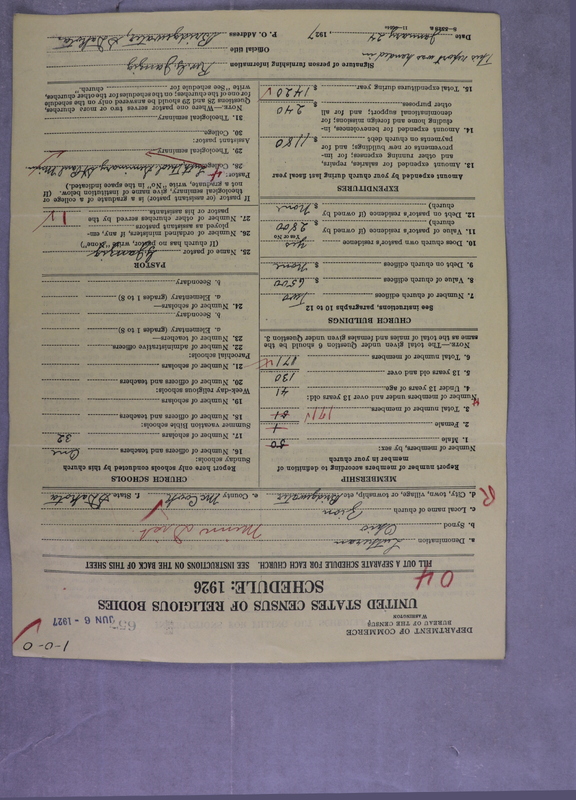 1-0-0
DEPARTMENT OF COMMERCE
BUREAU OF THE CENSUS
WASHINGTON
JUN 6 - 1927
UNITED STATES CENSUS OF RELIGIOUS BODIES
SCHEDULE: 1926
04
FILL OUT A SEPARATE SCHEDULE FOR EACH CHURCH. SEE INSTRUCTIONS ON THE BACK OF THIS SHEET
a. Denomination Lutheran
b. Synod Ohio
c. Local name of church Zion
d. City, town, village, or township, etc. Bridgewater e. County McCook f. State S. Dakota
MEMBERSHIP
Report number of members according to definition of member in your church
Number of members, by sex:
1. Male
2. Female
3. Total number of members 191
Number of members under and over 13 years old:
4. Under 13 years of age 41
5. 13 years old and over 130
6. Total number of members 171
NOTE.—The total given under Question 6 should be the same as the total of males and females given under Question 3.
CHURCH BUILDINGS
See instructions, paragraphs 10 to 12
7. Number of church edifices Two
8. Value of church edifices $ 6500
9. Debt on church edifices $ None
10. Does church own pastor's residence Yes
(Yes or No)
11. Value of pastor's residence (if owned by church) $ 2800
12. Debt on pastor's residence (if owned by church) $ None
EXPENDITURES
Amount expended by your church during last fiscal year
13. Amount expended for salaries, repairs, and other running expenses; for improvements or new buildings; and for payments on church debt $ 1180
14. Amount expended for benevolences, including home and foreign missions; for denominational support; and for all other purposes $ 240
15. Total expenditures during year $ 1420
CHURCH SCHOOLS
Report here only schools conducted by this church
Sunday schools:
16. Number of schools One
17. Number of scholars 32
Summer vacation Bible schools:
18. Number of schools
19. Number of scholars
Week-day religious schools:
20. Number of officers and teachers
21. Number of scholars
Parochial schools:
22. Number of administrative officers
23. Number of teachers—
a. Elementary (grades 1 to 8)
b. Secondary
24. Number of scholars—
a. Elementary (grades 1 to 8)
b. Secondary
PASTOR
25. Name of pastor
(If church has no pastor, write "None")
26. Number of ordained ministers, if any, employed as assistant pastors
27. Number of other churches served by the pastor or his assistant
If pastor (or assistant pastor) is a graduate of a college or theological seminary, give name of institution below. (If not a graduate, write "No" in the space indicated.)
Pastor:
28. College
29. Theological seminary
Assistant pastor:
30. College
31. Theological seminary
NOTE.—When one pastor serves two or more churches, Questions 28 and 29 should be answered only on the schedule for one of the churches; on the schedules for the other churches, write "See schedule for church."
Signature of person furnishing information
Official title
P. O. Address Bridgewater S Dakota
This report was handed in
Date January 24, 1927